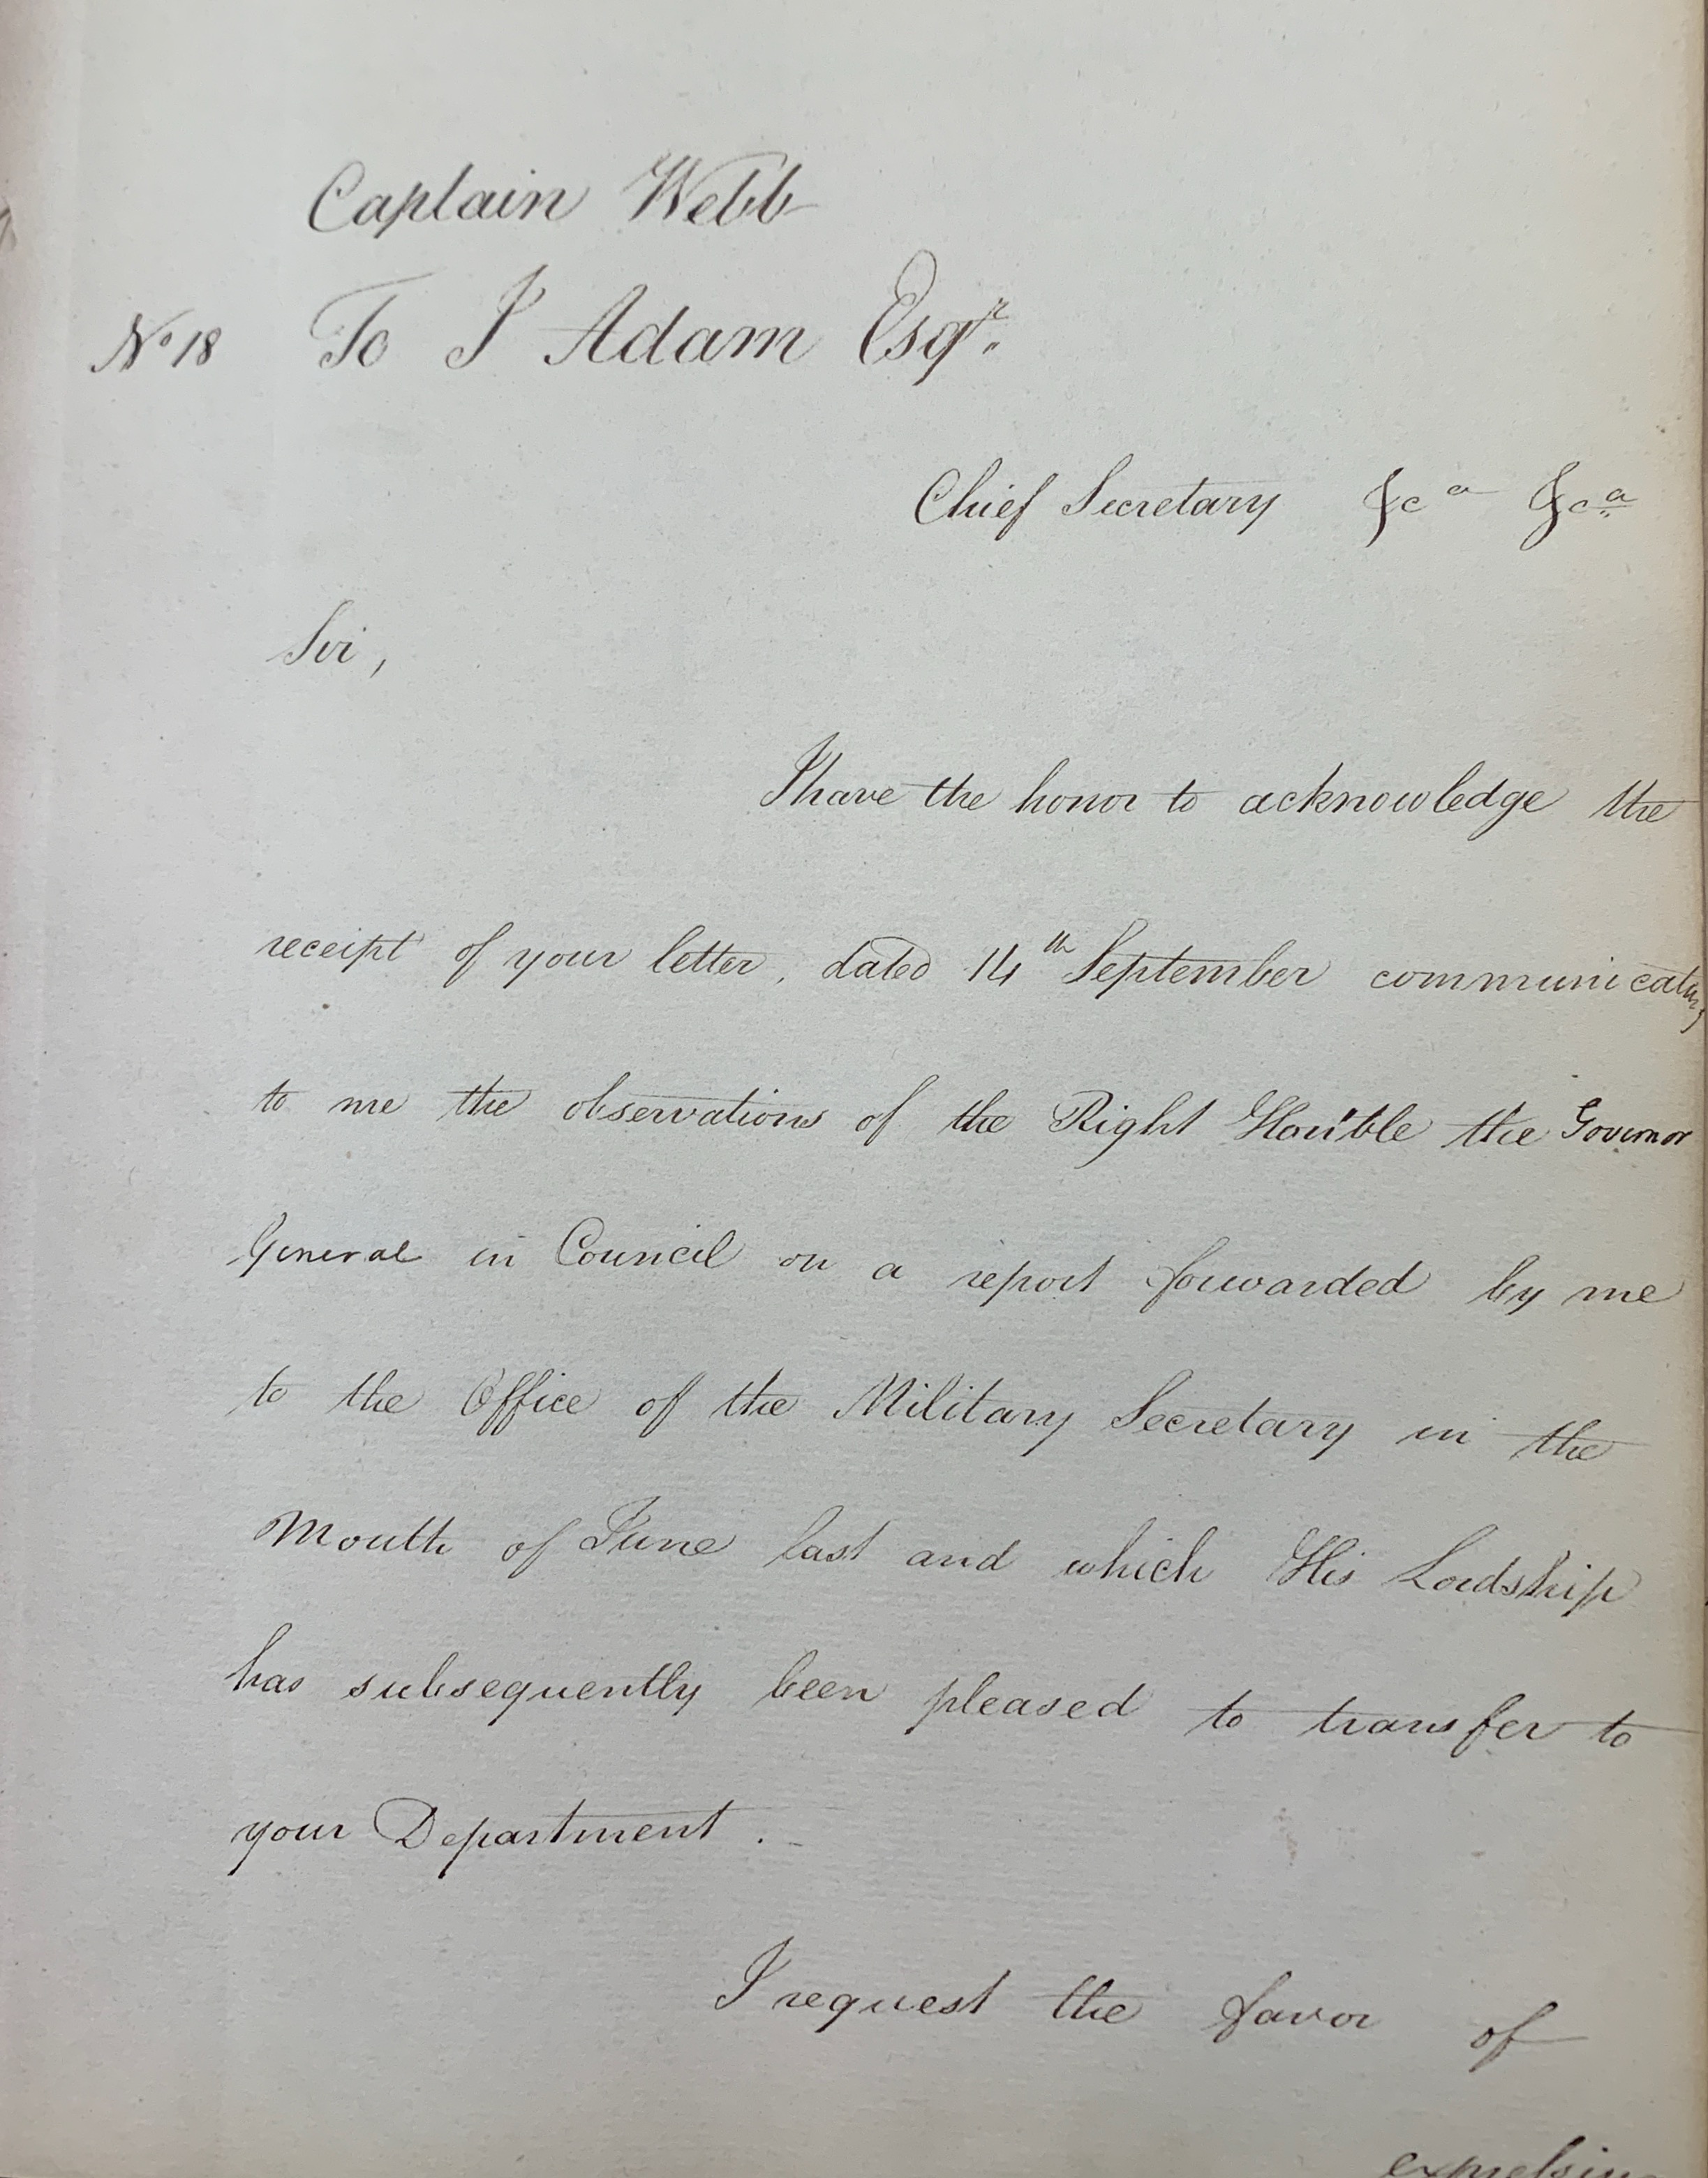 Captain Webb
No 18 To J Adam Esqr.
Chief Secretary &ca &ca
Sir,
I have the honor to acknowledge the
receipt of your letter, dated 14th September communicating
to me the observations of the Right Hon'ble the Governor
General in Council on a report forwarded by me
to the Office of the Military Secretary in the
Month of June last and which His Lordship
has subsequently been pleased to transfer to
your Department.
I request the favor of